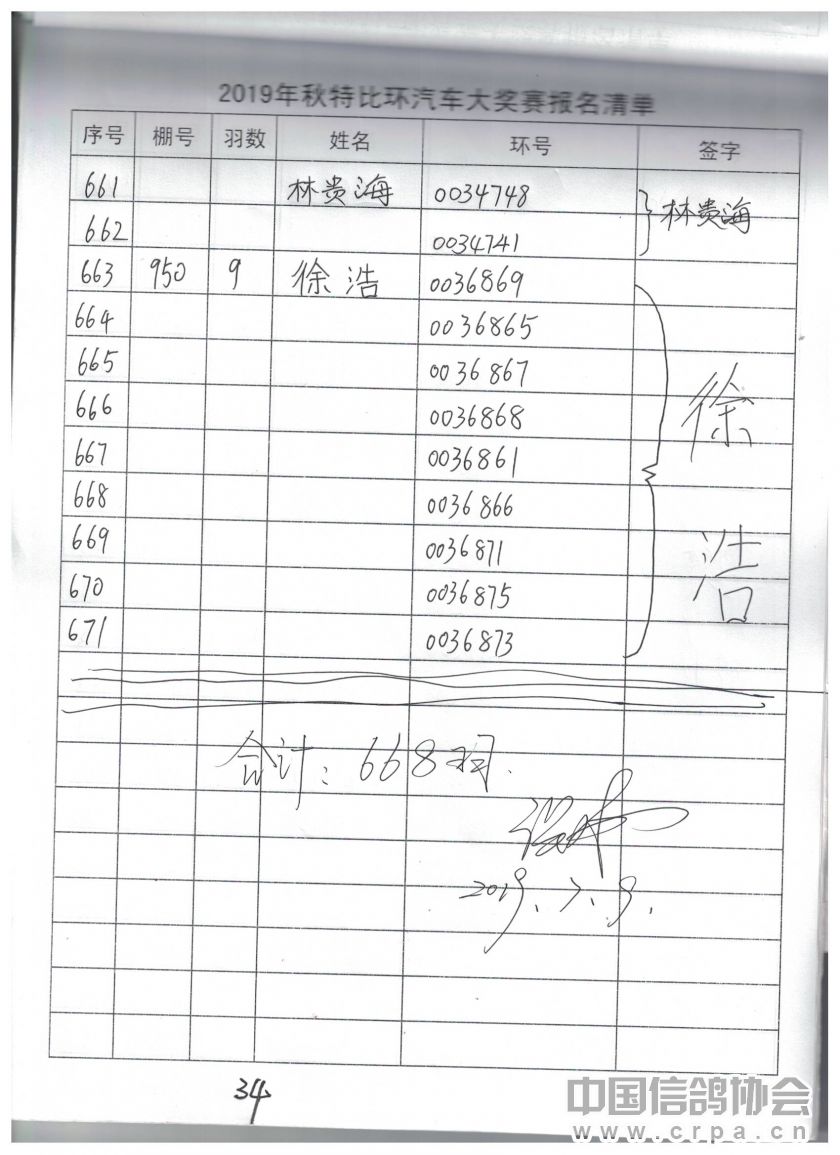 2019年秋特比环汽车大奖赛报名清单
序号 棚号 羽数 姓名 环号 签字
661 林贵海 0034748 林贵海
662 0034741
663 950 9 徐浩 0036869 徐浩
664 0036865
665 0036867
666 0036868
667 0036861
668 0036866
669 0036871
670 0036875
671 0036873
合计：668羽.
2019.7.9.
34
中国信鸽协会
www.crpa.cn